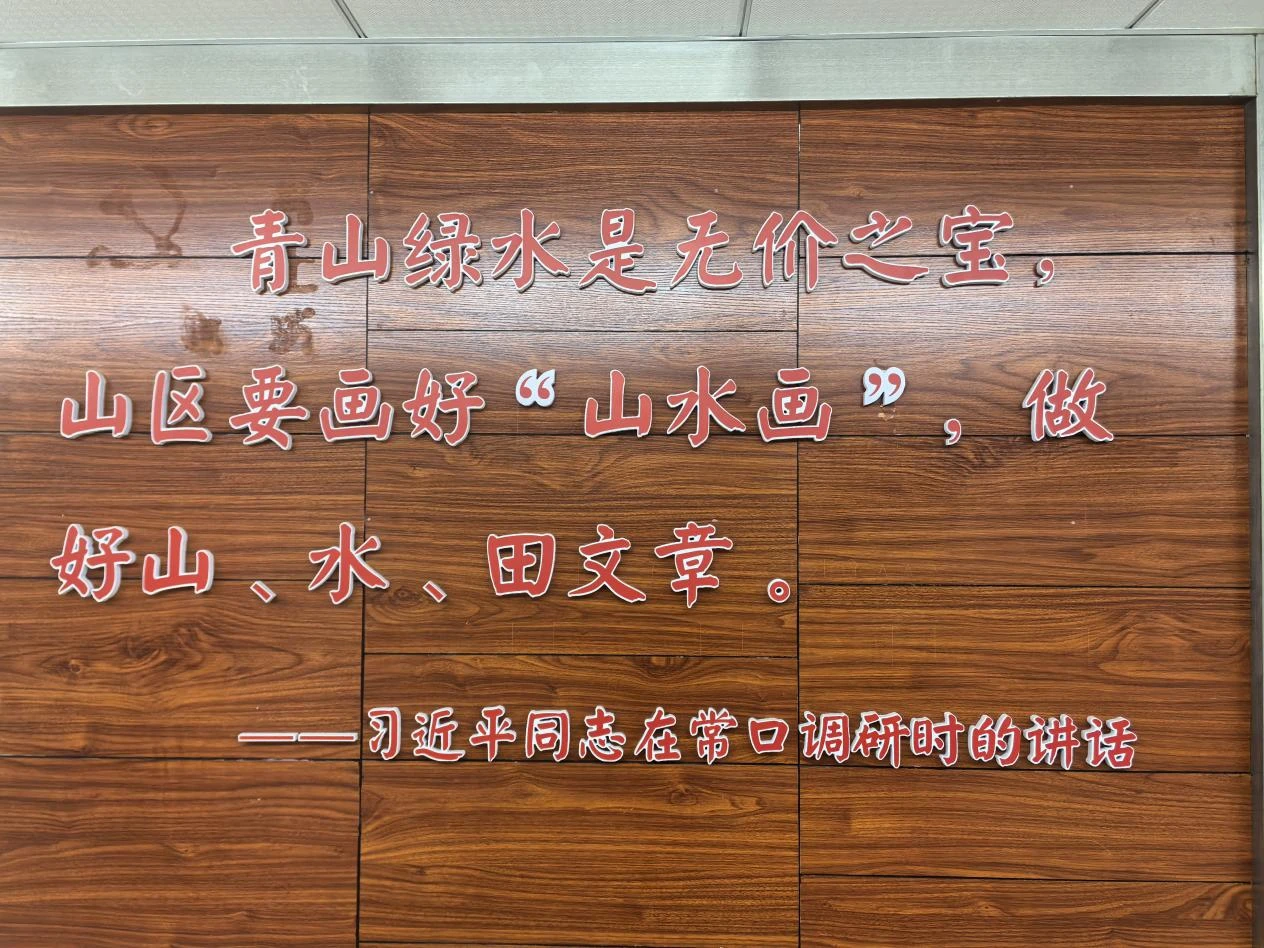 青山绿水是无价之宝，
山区要画好“山水画”，做
好山、水、田文章。
——习近平同志在常口调研时的讲话